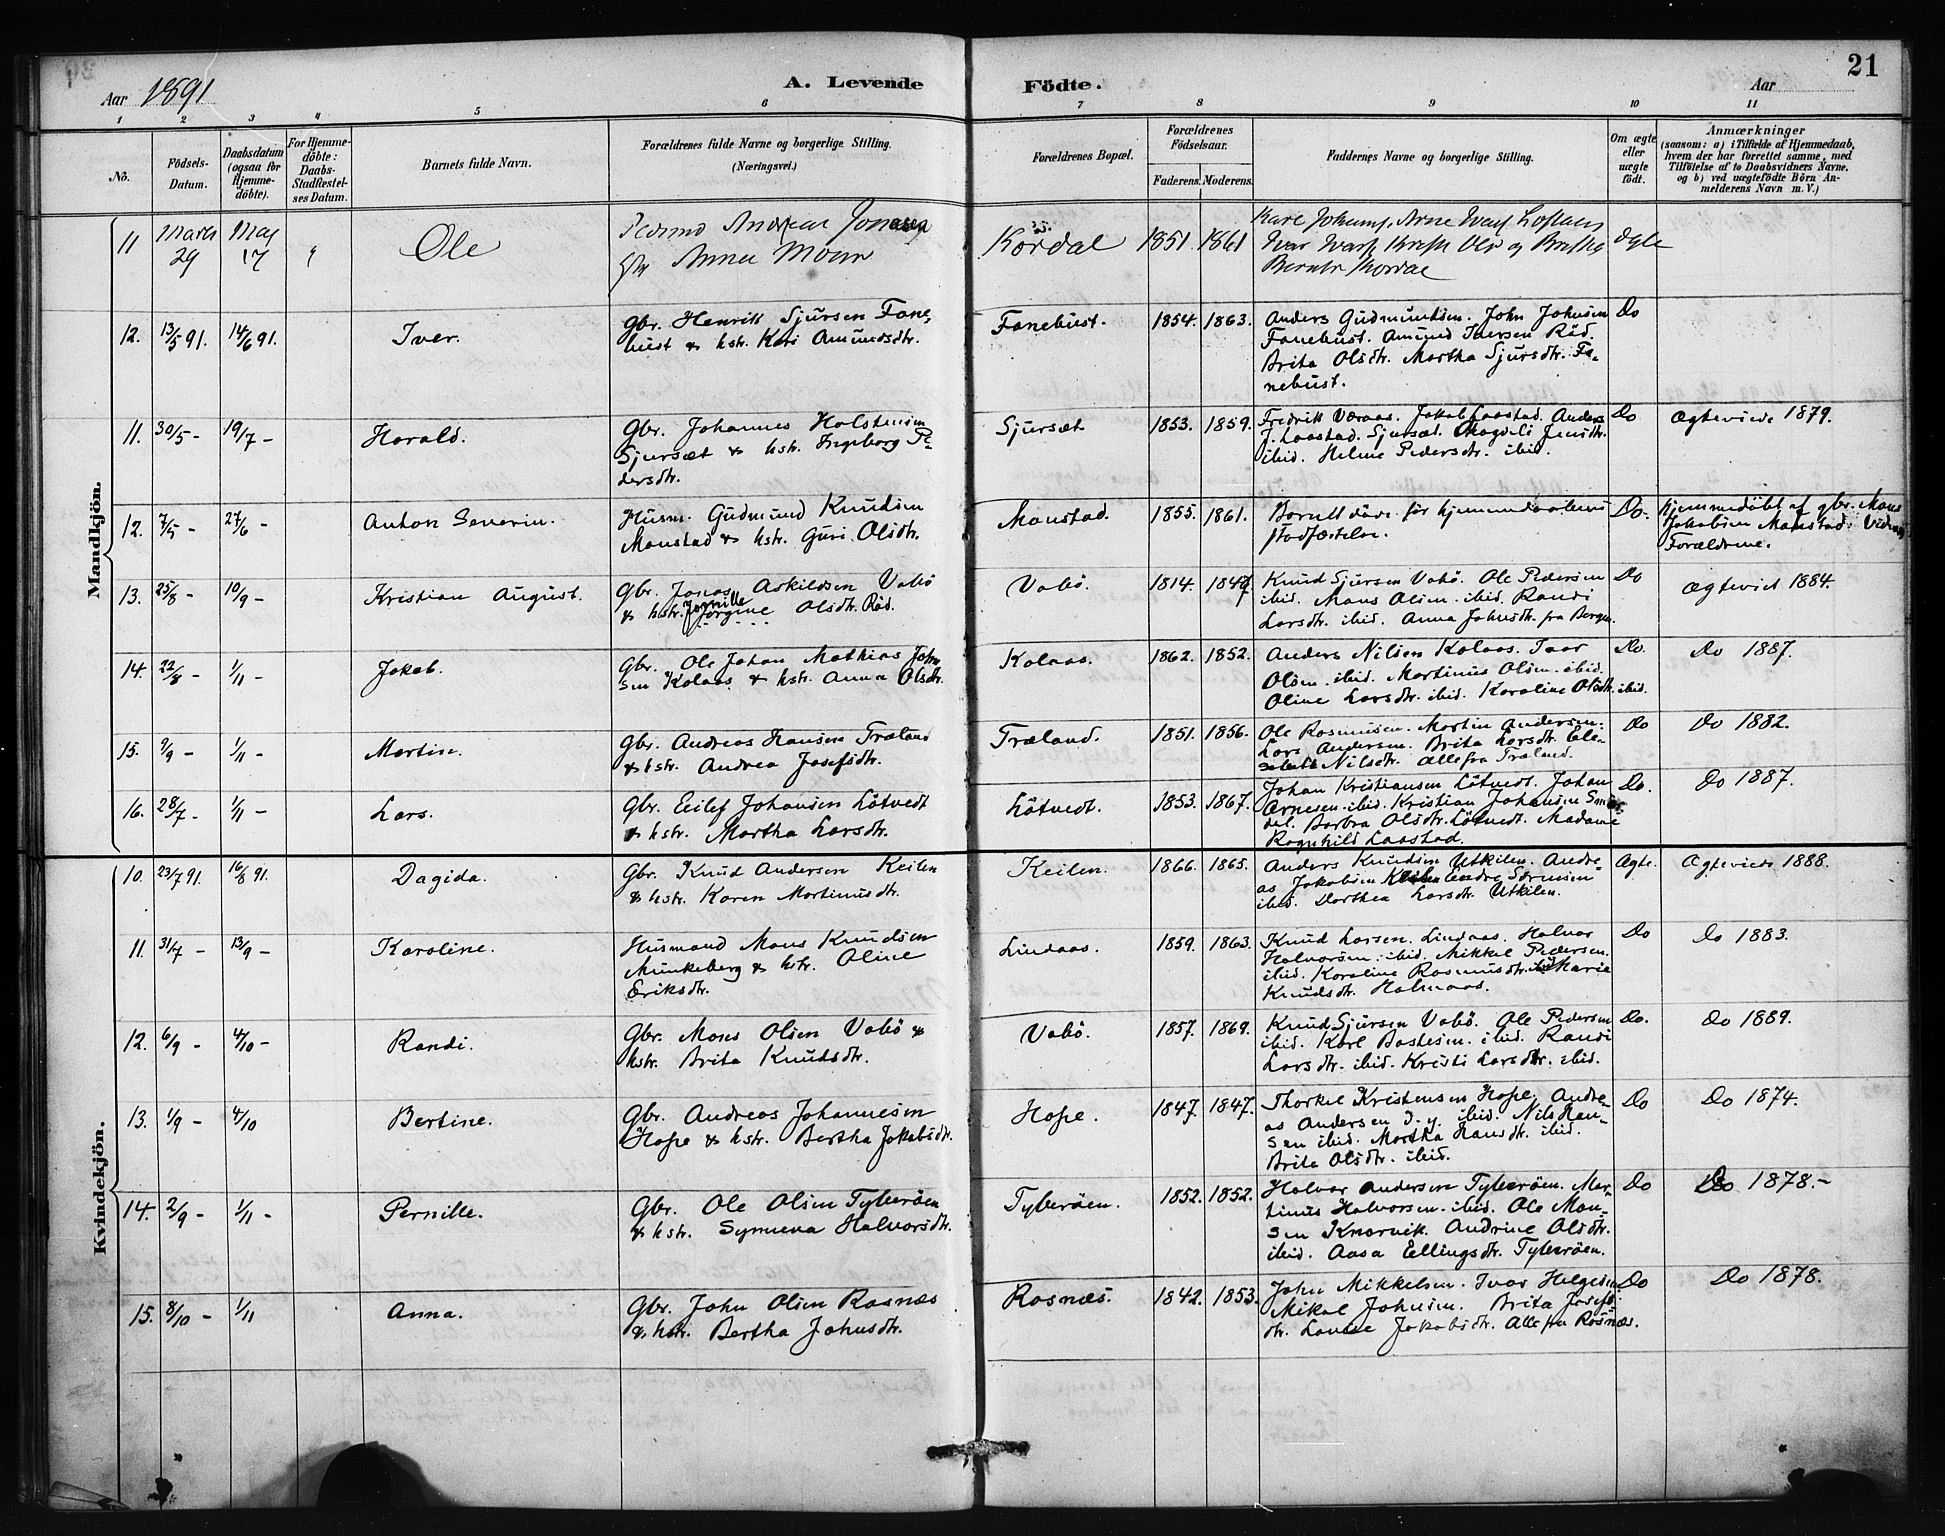 Aar 1891
A. Levende
Födte.
Aar
21
1 2 3 4 5 6 7 8 9 10 11
No.
Födsels-
Datum.
Daabsdatum
(ogsaa for
Hjemme-
döbte).
For Hjemme-
döbte:
Daabs-
Stadfæstel-
ses Datum.
Barnets fulde Navn.
Forældrenes fulde Navne og borgerlige Stilling.
(Næringsvei.)
Forældrenes Bopæl.
Forældrenes
Födselsaar.
Faderens. Moderens.
Faddernes Navne og borgerlige Stilling.
Om ægte
eller
uægte
födt.
Anmærkninger
(saasom: a) i Tilfælde af Hjemmedaab,
hvem der har forrettet samme, med
Tilföielse af to Daabsvidners Navne,
og b) ved uægtefödte Börn An-
melderens Navn m. V.)
Mandkjön.
11 Marts 29 Maj 17 Ole
Andreas Jonasen
Anna
Kordal 1851. 1861
12. 13/5 91. 14/6 91. Iver.
Gbr. Henrik Sjursen Fane-
bust & hstr. Kari Amundsdtr.
Fanebust. 1854. 1863.
Anders Gudmundsen. John Johnsen
Fanebust. Amund Iversen Räd.
Brita Olsdtr. Martha Sjursdtr. Fa-
nebust.
Do
11. 30/5 - 19/7 - Harald.
Gbr. Johannes Holstensen
Sjursæt & hstr. Ingeborg Pe-
dersdtr.
Sjursæt 1853. 1859.
Fredrik Væraas. Jakob Laastad. Anders
J. Laastad. Sjursæt. Magdeli Jensdtr.
ibid. Helene Pedersdtr. ibid.
Do Ægteviede 1879.
12. 7/5 - 27/6 - Anton Severin.
Husm. Gudmund Knudsen
Monstad & hstr. Guri Olsdtr.
Monstad. 1855. 1861.
Barnet döde för hjemmedaabens
stadfæstelse.
Do. Hjemmedöbt af gbr. Mons
Jakobsen Monstad. Vidner
Forældrene.
13. 25/8 - 10/9 - Kristian August.
Gbr. Jonas Askildsen Vabö
& hstr. Jörgine Olsdtr. Räd.
Pernille
Vabö. 1814. 1847
Knud Sjursen Vabö. Ole Pedersen
ibid. Mons Olsen. ibid. Randi
Larsdtr. ibid. Anna Johnsdtr. fra Bergen.
Do Ægteviet 1884.
14. 22/8 - 1/11 - Jakob.
Gbr. Ole Johan Mathias John-
sen Kolaas & hstr. Anna Olsdtr.
Kolaas. 1862. 1852.
Anders Nilsen Kolaas. Ivar
Olsen. ibid. Martinus Olsen. ibid.
Oline Larsdtr. ibid. Karoline Olsdtr. ibid.
Do. Do 1887.
15. 9/9 - 1/11 - Martin.
Gbr. Andreas Hansen Træland
& hstr. Andrea Josefsdtr.
Træland. 1851. 1856.
Ole Rasmusen. Martin Andersen.
Lars Andersen. Brita Larsdtr. Ele-
Nilsdtr. Alle fra Træland.
Do Do 1882.
16. 28/7 - 1/11 - Lars.
Gbr. Eilef Johansen Lötvedt
& hstr. Martha Larsdtr.
Lötvedt. 1853. 1867.
Johan Kristiansen Lötvedt. Johan
Arnesen. ibid. Kristian Johansen
Barbra Olsdtr. Lötvedt. Madame
Ragnhild Laastad.
Do. Do 1887.
Kvindekjön.
10. 23/7 91. 16/8 91. Dagida.
Gbr. Knud Andersen Keilen
& hstr. Karen Martinusdtr.
Keilen. 1866. 1865.
Anders Knudsen Utkilen. Andre-
as Jakobsen Keilen Endre Sörensen
ibid. Dorthea Larsdtr. Utkilen.
Ægte. Ægteviede 1888.
11. 31/7 - 13/9 - Karoline.
Husmand Mons Knudsen
Munkeberg & hstr. Oline
Eriksdtr.
Lindaas. 1859. 1863.
Knud Larsen. Lindaas. Halvor
Halvorsen. ibid. Mikkel Pedersen.
ibid. Karoline Rasmusdtr. ibid Marie
Knudsdtr. Halnaas.
Do Do 1883.
12. 6/9 - 4/10 - Randi.
Gbr. Mons Olsen Vabö &
hstr. Brita Knudsdtr.
Vabö. 1857. 1869.
Knud Sjursen Vabö. Ole Pedersen
ibid. Karl Bastesen. ibid. Randi
Larsdtr. ibid. Kristi Larsdtr. ibid.
Do. Do 1889.
13. 1/9 - 4/10 Bertine.
Gbr. Andreas Johannesen
Hope & hstr. Bertha Jakobsdtr.
Hope. 1847. 1847.
Thorkel Kristensen Hope. Andre-
as Andersen d. y. ibid. Nils Han-
sen ibid. Martha Hansdtr. ibid.
Brita Olsdtr. ibid.
Do Do 1874.
14. 2/9 - 1/11 - Pernille.
Gbr. Ole Olsen Tyberöen
& hstr. Synneva Halvorsdtr.
Tyberöen. 1852. 1852.
Halvor Andersen Tyberöen. Mar-
tinus Halvorsen. ibid. Ole Mon-
sen Knarvik. Andrine Olsdtr.
ibid. Aasa Ellingsdtr. Tyberöen.
Do Do 1878.-
15. 8/10 - 1/11 Anna.
Gbr. John Olsen Rosnæs
& hstr. Bertha Johnsdtr.
Rosnæs. 1842. 1853.
John Mikkelsen. Ivar Helgesen
Mikal Johnsen. Brita Josefs-
dtr. Lovise Jakobsdtr. Alle fra Rosnæs.
Do Do 1878.